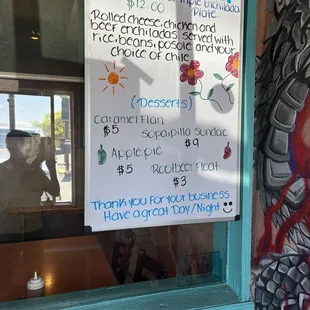 $12.00
Triple Enchilada
Plate
Rolled cheese, chicken and
beef enchiladas served with
rice, beans, posole and your
choice of chile
(Desserts)
Caramel Flan
$5
Sopaipilla Sundae
$9
Apple pie
$5
Rootbeer Float
$3
Thank you for your business
Have a great Day/Night